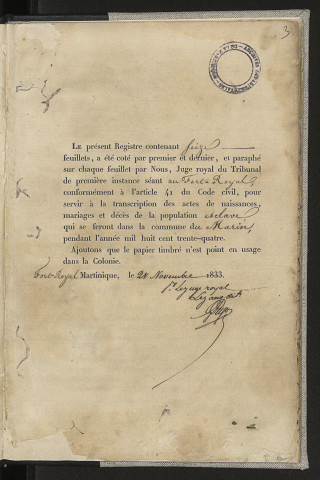 3
LE présent Registre contenant seize
feuillets, a été coté par premier et dernier, et paraphé
sur chaque feuillet par Nous, Juge royal du Tribunal
de première instance séant au Fort-Royal,
conformément à l'article 41 du Code civil, pour
servir à la transcription des actes de naissances,
mariages et décès de la population esclave
qui se feront dans la commune du Marin,
pendant l'année mil huit cent trente-quatre.
Ajoutons que le papier timbré n'est point en usage
dans la Colonie.
Fort-Royal Martinique, le 28 Novembre 1833.
Le juge royal